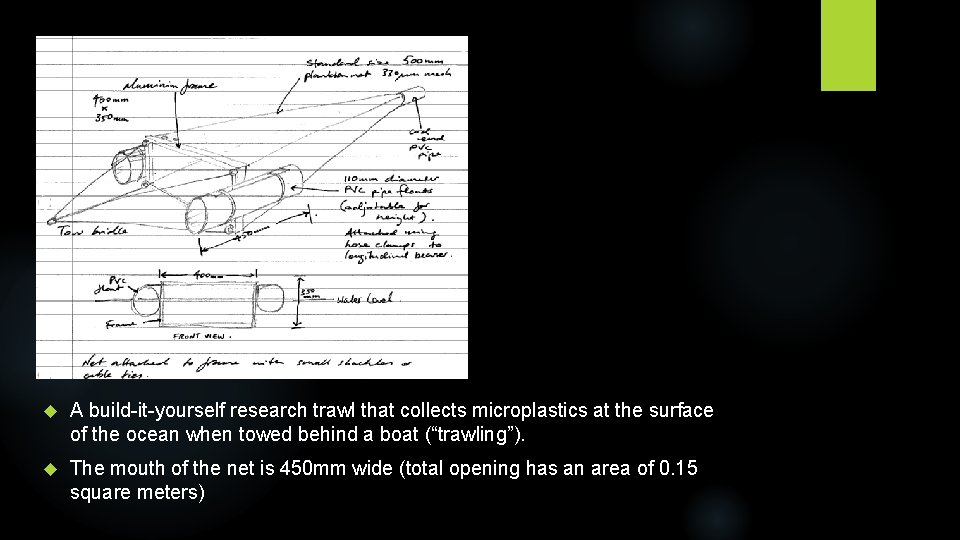 Standard size 500mm
plankton net 330µm mesh
Aluminium frame
400mm
x
350mm
cod
end
PVC
pipe
110mm diameter
PVC pipe floats
(adjustable for
height).
Attached using
hose clamps to
longitudinal bearer.
Tow bridle
450mm
400mm
PVC
float
350
mm
Water Level
Frame
FRONT VIEW.
Net attached to frame with small shackles or
cable ties.
A build-it-yourself research trawl that collects microplastics at the surface
of the ocean when towed behind a boat (“trawling”).
The mouth of the net is 450mm wide (total opening has an area of 0.15
square meters)